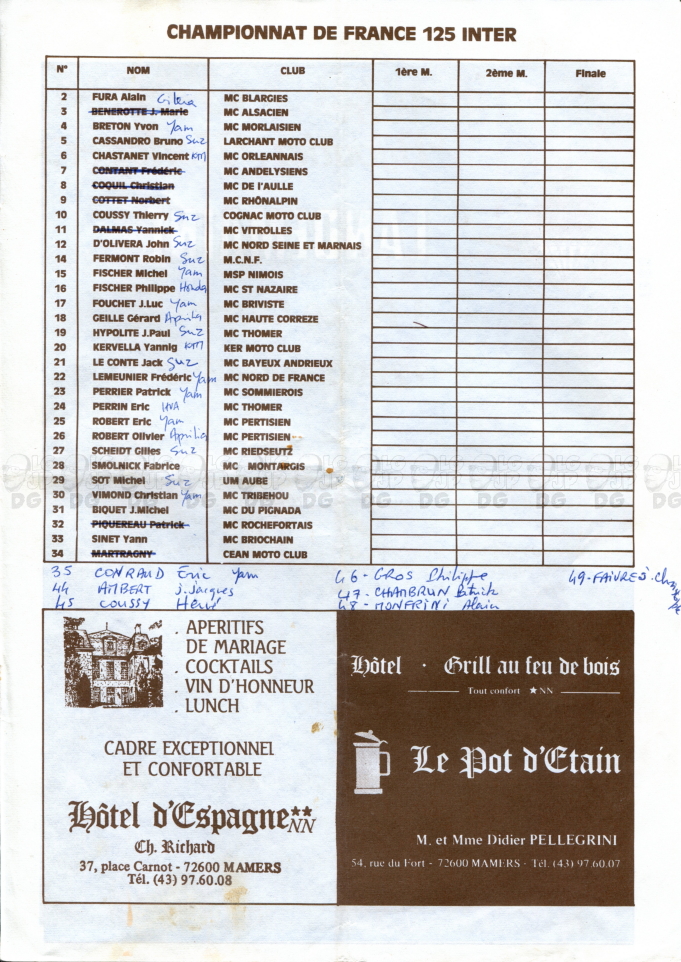 CHAMPIONNAT DE FRANCE 125 INTER
N° NOM CLUB 1ère M. 2ème M. Finale
2 FURA Alain Gilera MC BLARGIES
3 BENEROTTE J. Marie MC ALSACIEN
4 BRETON Yvon Yam MC MORLAISIEN
5 CASSANDRO Bruno Suz LARCHANT MOTO CLUB
6 CHASTANET Vincent KTM MC ORLEANNAIS
7 CONTANT Frédéric MC ANDELYSIENS
8 COQUIL Christian MC DE l'AULLE
9 COTTET Norbert MC RHÔNALPIN
10 COUSSY Thierry Suz COGNAC MOTO CLUB
11 DALMAS Yannick MC VITROLLES
12 D'OLIVERA John Suz MC NORD SEINE ET MARNAIS
14 FERMONT Robin Suz M.C.N.F.
15 FISCHER Michel Yam MSP NIMOIS
16 FISCHER Philippe Honda MC ST NAZAIRE
17 FOUCHET J.Luc Yam MC BRIVISTE
18 GEILLE Gérard Aprilia MC HAUTE CORREZE
19 HYPOLITE J.Paul Suz MC THOMER
20 KERVELLA Yannig KTM KER MOTO CLUB
21 LE CONTE Jack Suz MC BAYEUX ANDRIEUX
22 LEMEUNIER Frédéric Yam MC NORD DE FRANCE
23 PERRIER Patrick Yam MC SOMMIEROIS
24 PERRIN Eric HVA MC THOMER
25 ROBERT Eric Yam MC PERTISIEN
26 ROBERT Olivier Aprilia MC PERTISIEN
27 SCHEIDT Gilles Suz MC RIEDSEUTZ
28 SMOLNICK Fabrice MC MONTARGIS
29 SOT Michel Suz UM AUBE
30 VIMOND Christian Yam MC TRIBEHOU
31 BIQUET J.Michel MC DU PIGNADA
32 PIQUEREAU Patrick MC ROCHEFORTAIS
33 SINET Yann MC BRIOCHAIN
34 MARTRAGNY CEAN MOTO CLUB
35 CONRAUD Eric Yam 46 - GROS Philippe 49 - FAIVRE J. Christophe
44 AMBERT J. Jacques 47 - CHAMBRUN Patrick
45 COUSSY Hervé 48 - MONFRINI Alain
. APERITIFS
DE MARIAGE
. COCKTAILS
. VIN D'HONNEUR
. LUNCH
CADRE EXCEPTIONNEL
ET CONFORTABLE
Hôtel d'Espagne ** NN
Ch. Richard
37, place Carnot - 72600 MAMERS
Tél. (43) 97.60.08
Hôtel · Grill au feu de bois
Tout confort ★NN
Le Pot d'Etain
M. et Mme Didier PELLEGRINI
54, rue du Fort - 72600 MAMERS - Tél. (43) 97.60.07
DG DG DG DG DG DG DG DG DG